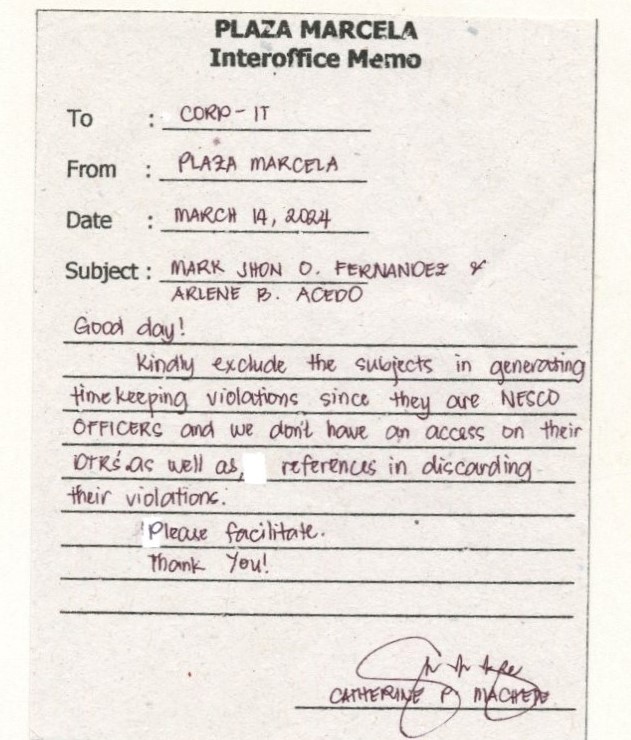 PLAZA MARCELA
Interoffice Memo
To : CORP-IT
From : PLAZA MARCELA
Date : MARCH 14, 2024
Subject : MARK JHON O. FERNANDEZ &
ARLENE B. ACEDO
Good day!
Kindly exclude the subjects in generating
timekeeping violations since they are NESCO
OFFICERS and we don't have an access on their
DTRs' as well as, references in discarding
their violations.
Please facilitate.
Thank You!
CATHERINE P.